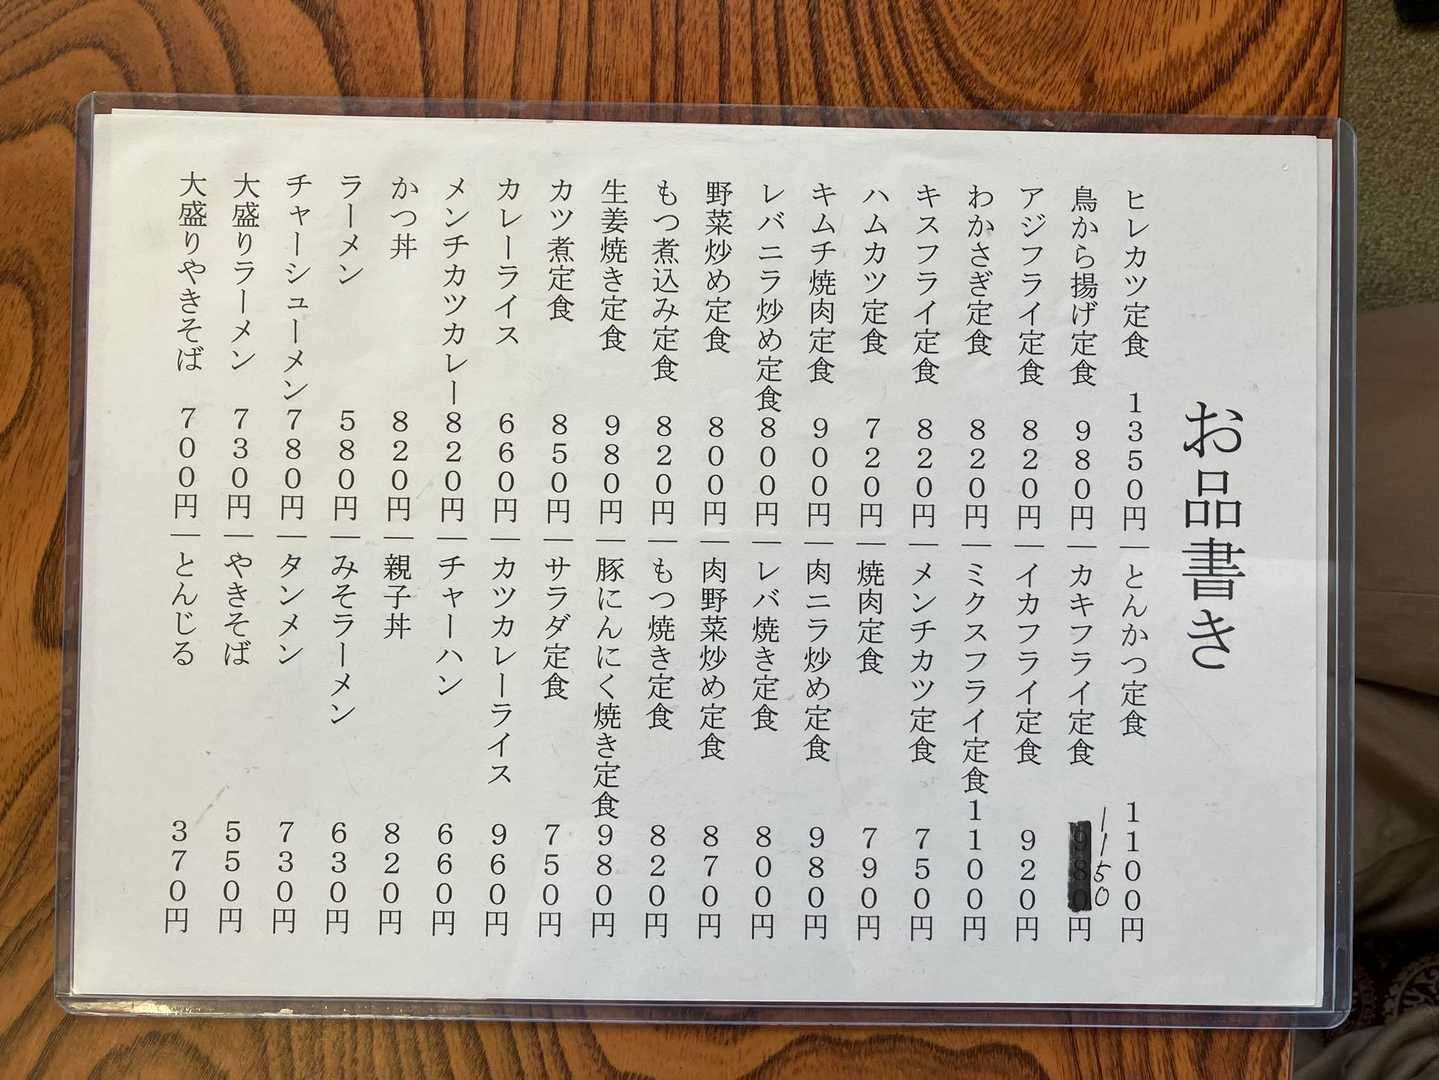 お品書き
ヒレカツ定食 1350円｜とんかつ定食 1100円
鳥から揚げ定食 980円｜カキフライ定食 980円 1150
アジフライ定食 820円｜イカフライ定食 920円
わかさぎ定食 820円｜ミクスフライ定食1100円
キスフライ定食 820円｜メンチカツ定食 750円
ハムカツ定食 720円｜焼肉定食 790円
キムチ焼肉定食 900円｜肉ニラ炒め定食 980円
レバニラ炒め定食800円｜レバ焼き定食 800円
野菜炒め定食 800円｜肉野菜炒め定食 870円
もつ煮込み定食 820円｜もつ焼き定食 820円
生姜焼き定食 980円｜豚にんにく焼き定食980円
カツ煮定食 850円｜サラダ定食 750円
カレーライス 660円｜カツカレーライス 960円
メンチカツカレー820円｜チャーハン 660円
かつ丼 820円｜親子丼 820円
ラーメン 580円｜みそラーメン 630円
チャーシューメン780円｜タンメン 730円
大盛りラーメン 730円｜やきそば 550円
大盛りやきそば 700円｜とんじる 370円